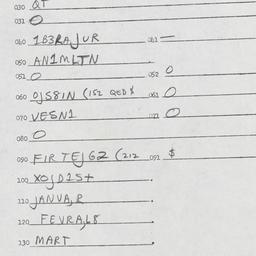 030 QT
031 O
040 1B3RAJUR 041 —
050 AN1MLTN
051 O 052 O
060 OJS8IN (152 QED $ 061 O
070 VESN1 071 O
080 O
090 FIRTEJGZ (212 091 $
100 XOJD1S+
110 JANVA,R
120 FEVRA,L8
130 MART